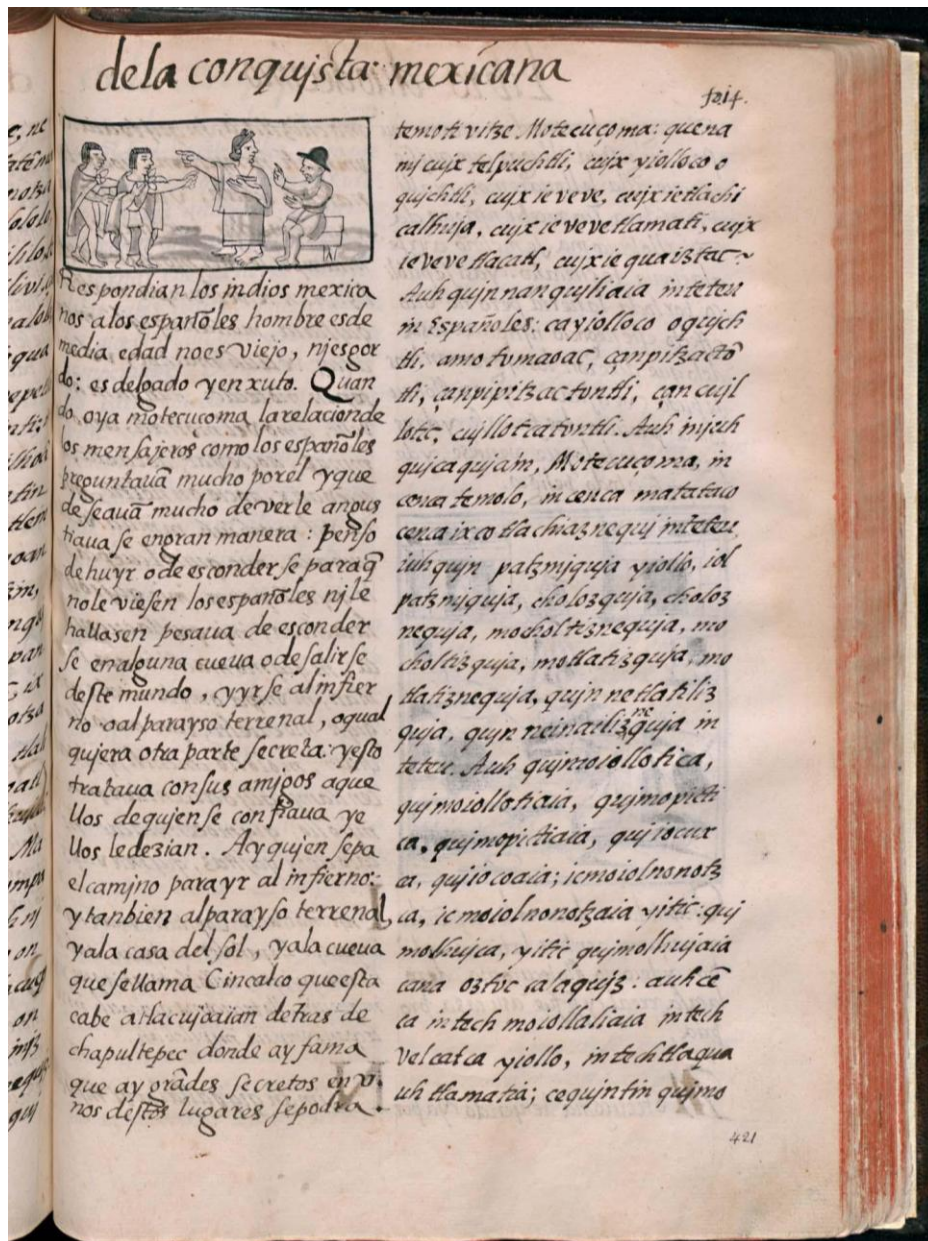 dela conquista mexicana
fo.14.
Respondian los indios mexica
nos alos españoles hombre es de
media edad no es viejo, nj es gor
do: es delgado y enxuto. Quan
do oya motecuçoma la relacion de
los mensajeros como los españoles
preguntauã mucho por el y que
deseauã mucho de verle angus
tiaua se en gran manera: penso
de huyr o de esconder se para q̃
no le viesen los españoles nj le
hallasen pesaua de esconder
se en alguna cueua o de salir se
deste mundo, y yr se al infier
no o al parayso terrenal, o qual
qujera otra parte secreta: y esto
trataua con sus amigos aque
llos de qujen se confiaua y e
llos le dezian. Ay qujen sepa
el camjno para yr al infierno:
y tanbien al parayso terrenal,
y ala casa del sol, y ala cueua
que se llama Cincalco que esta
cabe atlacujoaian detras de
chapultepec donde ay fama
que ay grãdes secretos en v
nos destos lugares se podra
temoti vitze. Motecuçoma: quena
mj cujx telpuchtli, cujx yiolloco o
qujchtli, cujx ie veve, cujx ie tlachi
calhuja, cujx ie veve tlamati, cujx
ie veve tlacatl, cujx ie quaiztac
Auh qujnnanqujliaia in teteu
in Españoles: ca yiolloco oqujch
tli, amo tomaoac, çan pitzactõ
tli, çan pipitzactontli, çan cujl
lotic, cujllotcatontli. Auh in juh
qujcaqujain, Motecuçoma, in
cenca temolo, in cenca matataco
cenca ixco tlachiaznequj in teteu
iuhqujn patzmjquja yiollo, iol
patzmjquja, cholozquja, choloz
nequja, mocholtiznequja, mo
choltizquja, motlatizquja, mo
tlatiznequja, qujnnetlatiliz
quja, qujnneinaeliz ne quja in
teteu. Auh qujmoiollotica,
qujmoiollotiaia, qujmopicti
ca, qujmopictiaia, qujiocux
ca, qujiocoaia; ic moiolnonotz
ca, ic moiolnonotzaia yitic: quj
molhujca, yitic qujmolhujaia
cana oztoc calaqujz: auh cẽ
ca intech moiollaliaia intech
vel catca yiollo, intech tlaqua
uh tlamatia; cequjntin qujmo
421